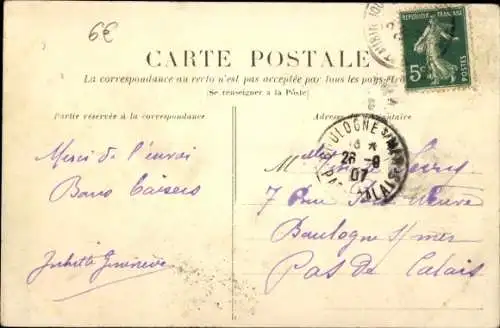 6€
CARTE POSTALE
La correspondance au recto n'est pas acceptée par tous les pays étr
(Se renseigner à la Poste)
Partie réservée à la correspondance
Adresse du destinataire
REPUBLIQUE FRANÇAISE
5c
POSTES
BOULOGNE S/MER
26 -9
07
PAS CALAIS
Merci de l'envoi
Bons baisers
Juliette Geneviève
7 Rue Neuve
Boulogne s/mer
Pas de Calais